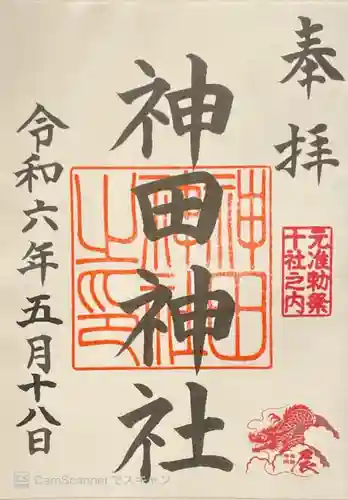 奉拝
元准勅祭
十社之内
神田神社
神田
神社
之印
辰
令和六年五月十八日
CamScanner でスキャン